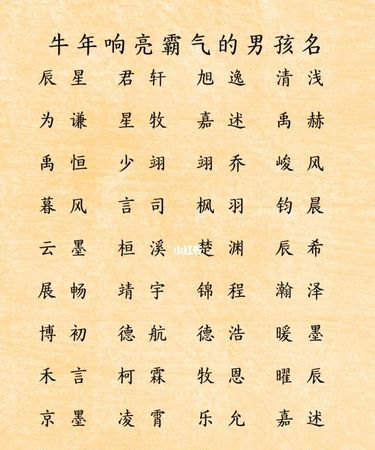 牛年响亮霸气的男孩名
辰星 君轩 旭逸 清浅
为谦 星牧 嘉述 禹赫
禹恒 少翊 翊乔 峻风
暮风 言司 枫羽 钧晨
云墨 桓溪 楚渊 辰希
小红书
展畅 靖宇 锦程 瀚泽
博初 德航 德浩 暖墨
禾言 柯霖 牧恩 曜辰
京墨 凌霄 乐允 嘉述